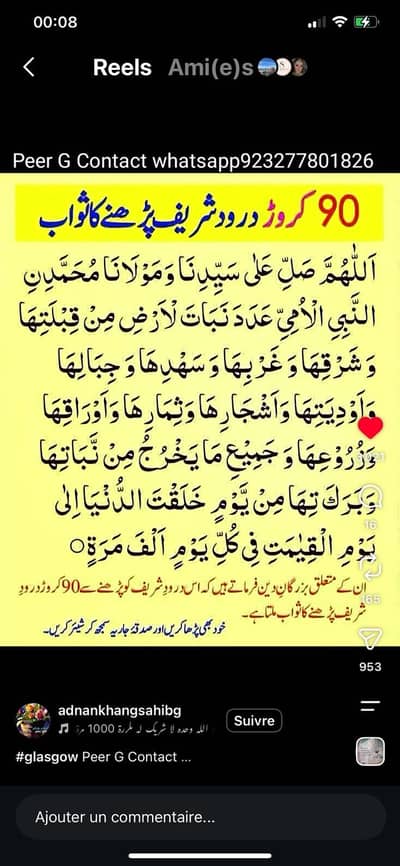 00:08
Reels Ami(e)s
Peer G Contact whatsapp923277801826
90 کروڑ درود شریف پڑھنے کا ثواب
اَللّٰهُمَّ صَلِّ عَلٰى سَيِّدِنَا وَمَوْلَانَا مُحَمَّدِنِ
النَّبِيِ الْاُمِيِّ عَدَدَ نَبَاتَ لْاَرْضِ مِنْ قِبْلَتِهَا
وَ شَرْقِهَا وَ غَرْبِهَا وَ سَهْلِهَا وَ جِبَالِهَا
وَاَوْدِيَتِهَا وَاَشْجَارِهَا وَثِمَارِهَا وَاَوْرَاقِهَا
وَزُرُوْعِهَا وَ جَمِيْعِ مَا يَخْرُجُ مِنْ نَّبَاتِهَا
وَبَرَكَاتِهَا مِنْ يَّوْمٍ خَلَقْتَ الدُّنْيَا اِلٰى
يَوْمِ الْقِيٰمَتِ فِىْ كُلِّ يَوْمٍ اَلْفَ مَرَةٍ○
ان کے متعلق بزرگان دین فرماتے ہیں کہ اس درود شریف کو پڑھنے سے 90 کروڑ درود
شریف پڑھنے کا ثواب ملتا ہے۔
خود بھی پڑھا کریں اور صدقہ جاریہ سمجھ کر شیئر کریں۔
16
165
953
adnankhangsahibg
الله وحده لا شريك له مكررة 1000 مرة
Suivre
#glasgow Peer G Contact ...
Ajouter un commentaire...